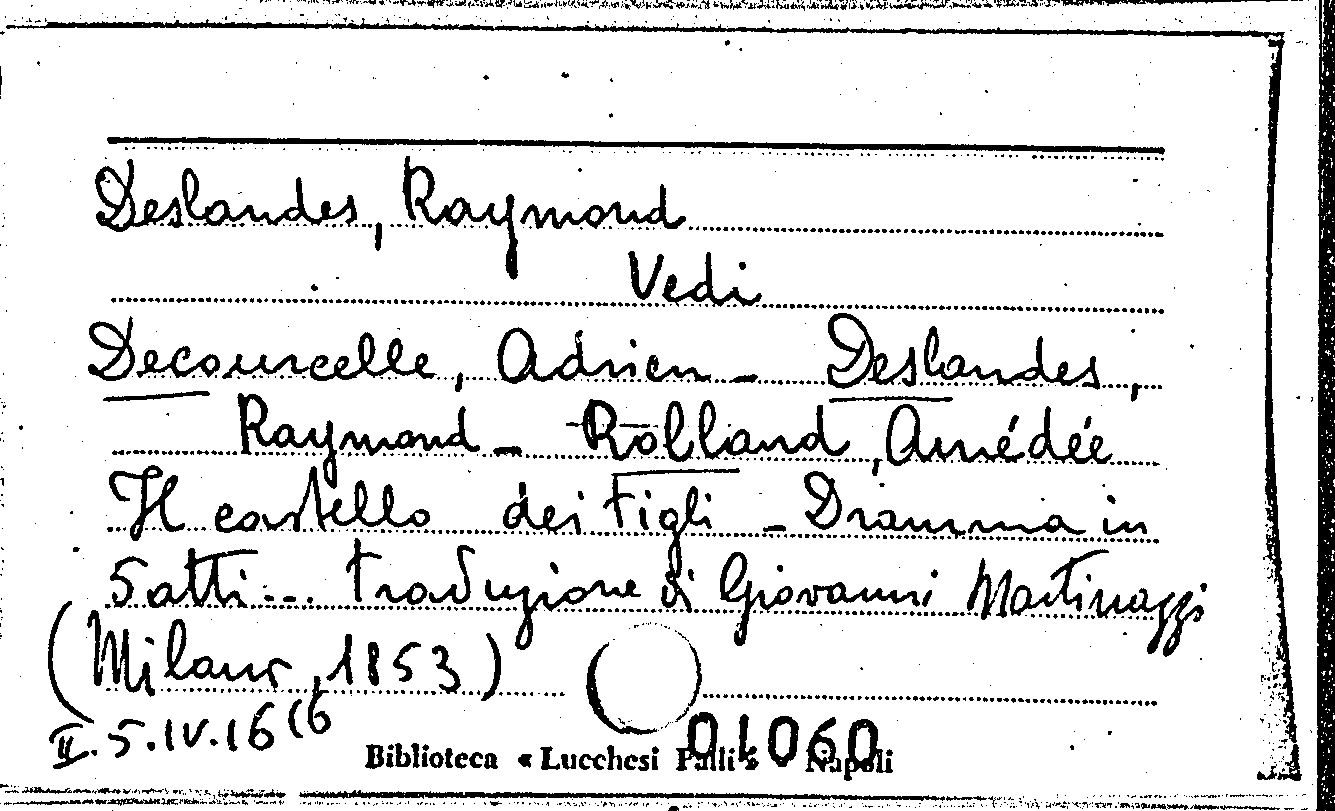 Deslandes, Raymond
Vedi
Decourcelle, Adrien - Deslandes,
Raymond - Rolland, Amédée
Il castello dei Figli - Dramma in
5 atti... traduzione di Giovanni Martinazzi
(Milano, 1853)
II.5.IV.16 (6
01060
Biblioteca « Lucchesi Palli » Napoli